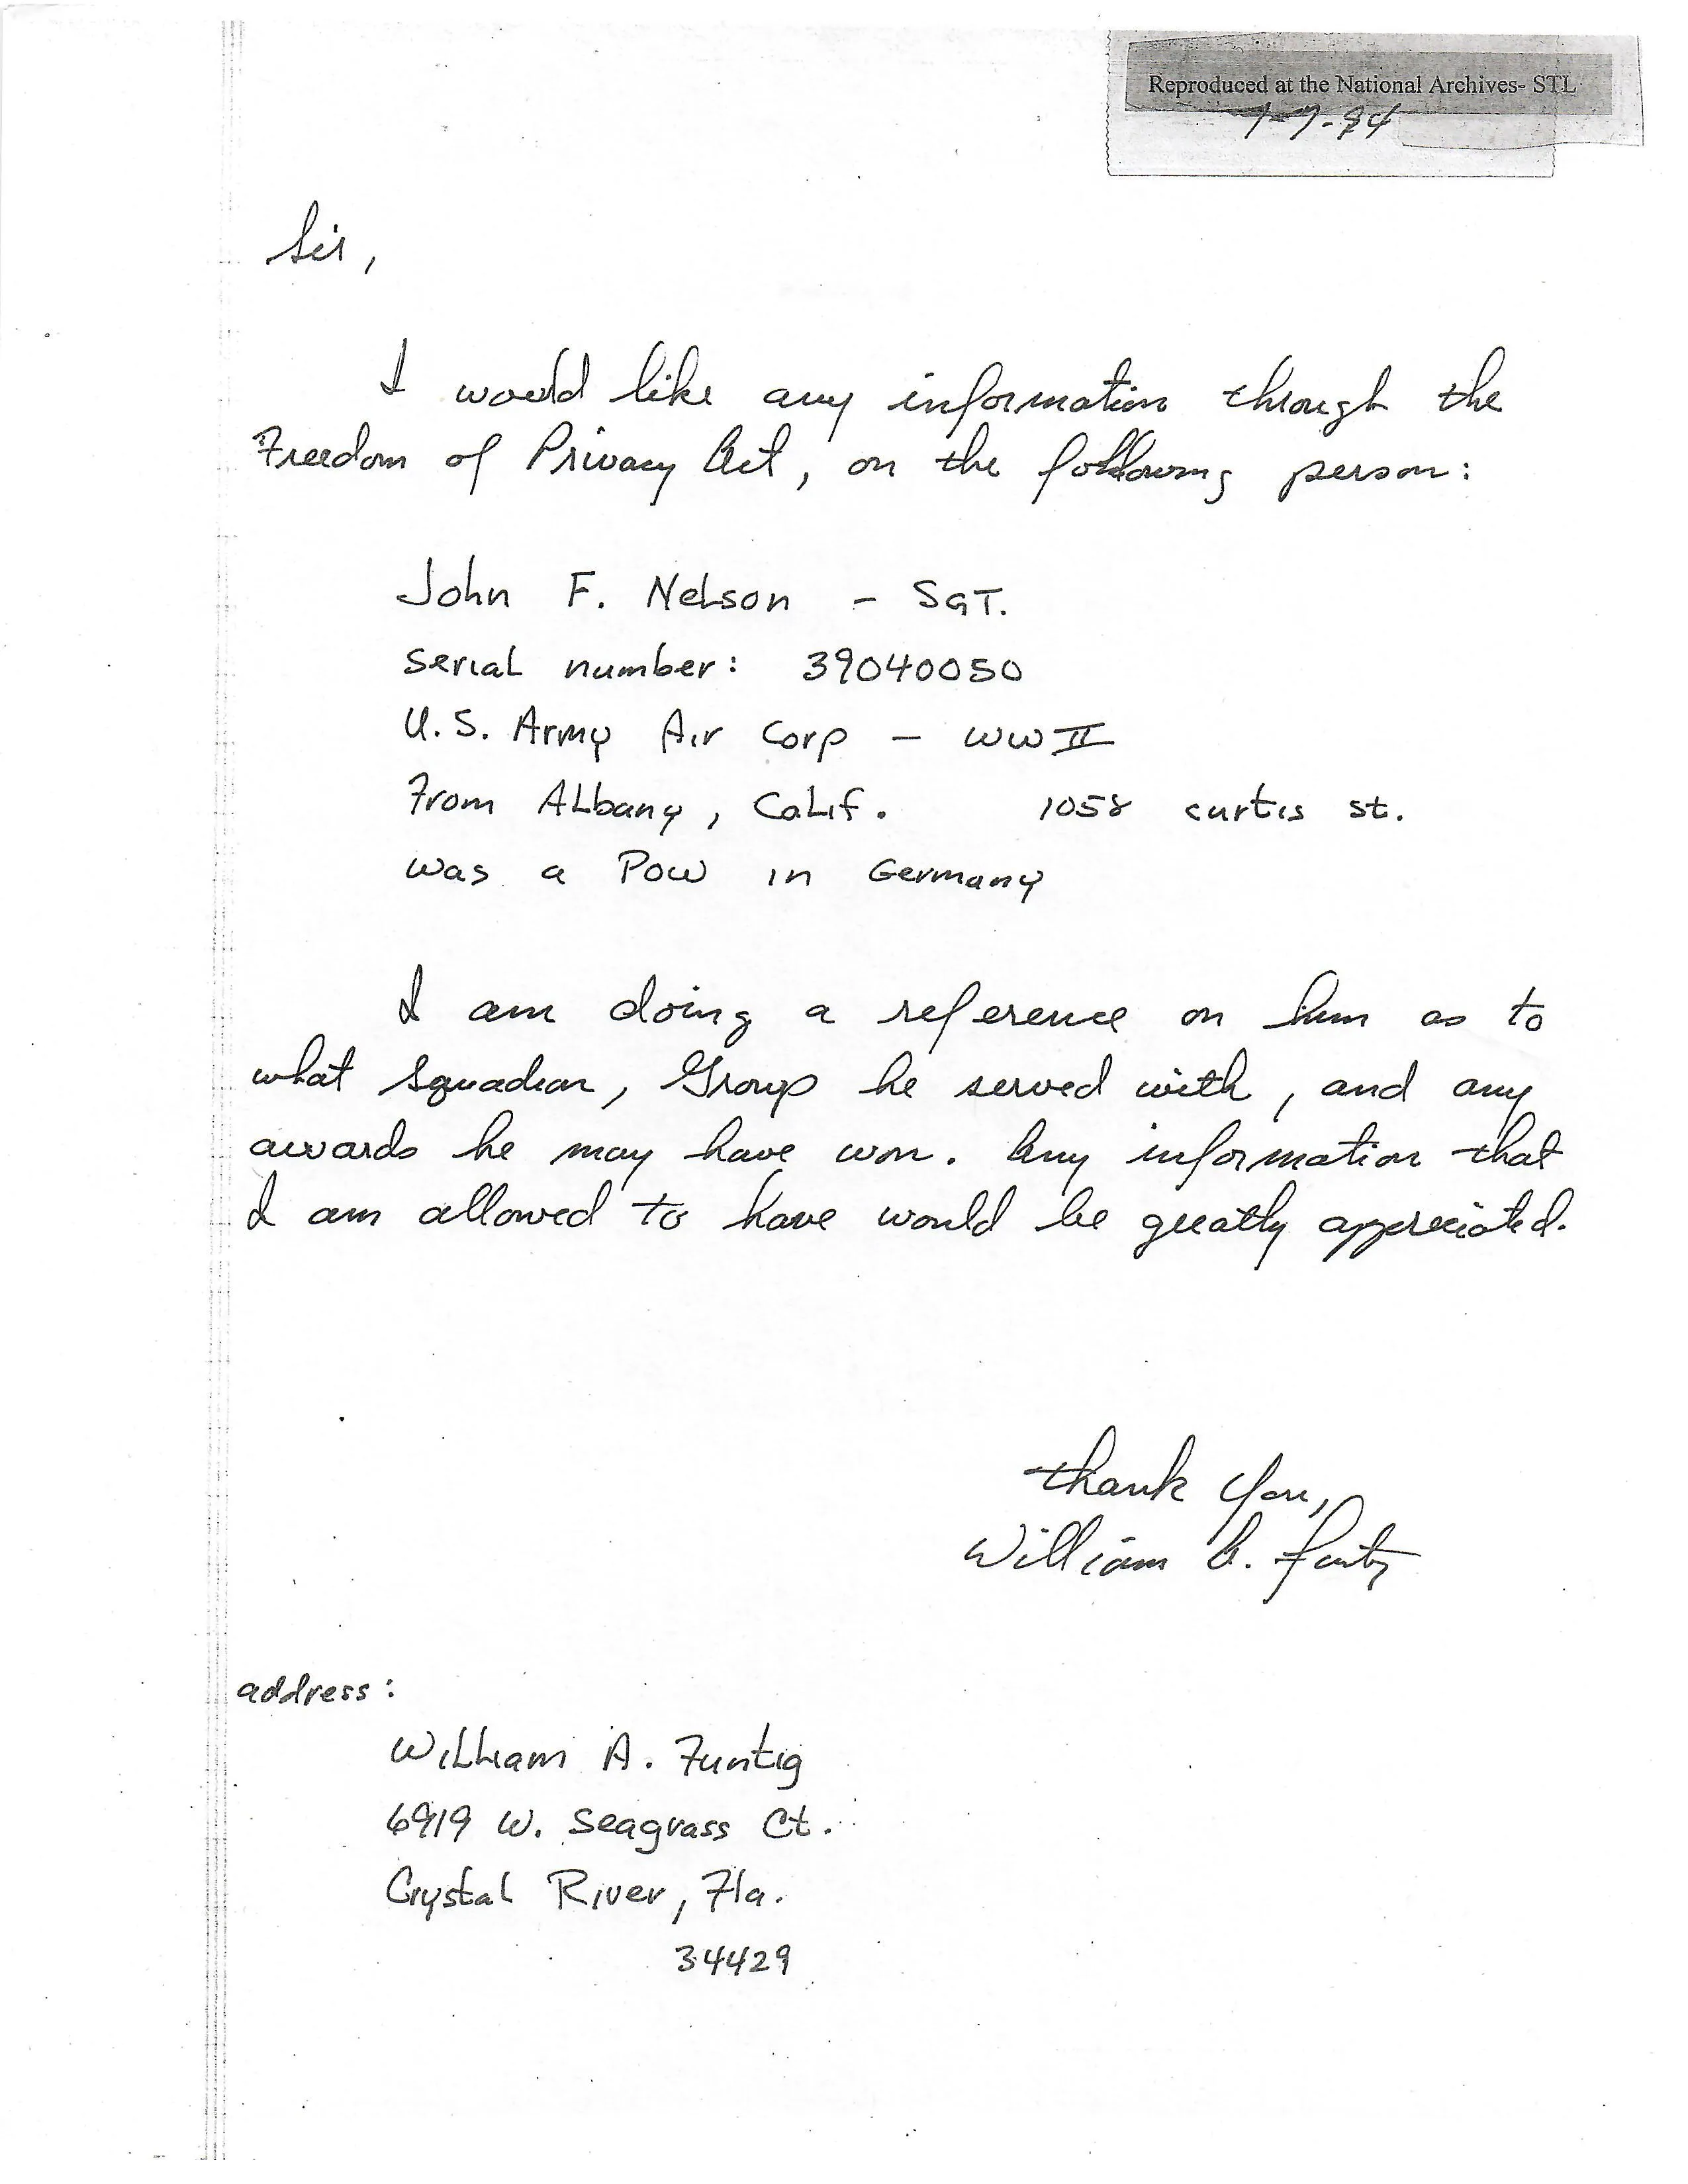 Reproduced at the National Archives- STL
Sir,
I would like any information through the
Freedom of Privacy Act, on the following person:
John F. Nelson - SGT.
serial number: 39040050
U.S. Army Air Corp - WWII
From Albany, Calif. 1058 curtis st.
was a POW in Germany
I am doing a reference on him as to
what squadron, Group he served with, and any
awards he may have won. Any information that
I am allowed to have would be greatly appreciated.
Thank You,
William A.
address:
William A. Funtig
6919 W. Seagrass Ct.
Crystal River, Fla.
34429